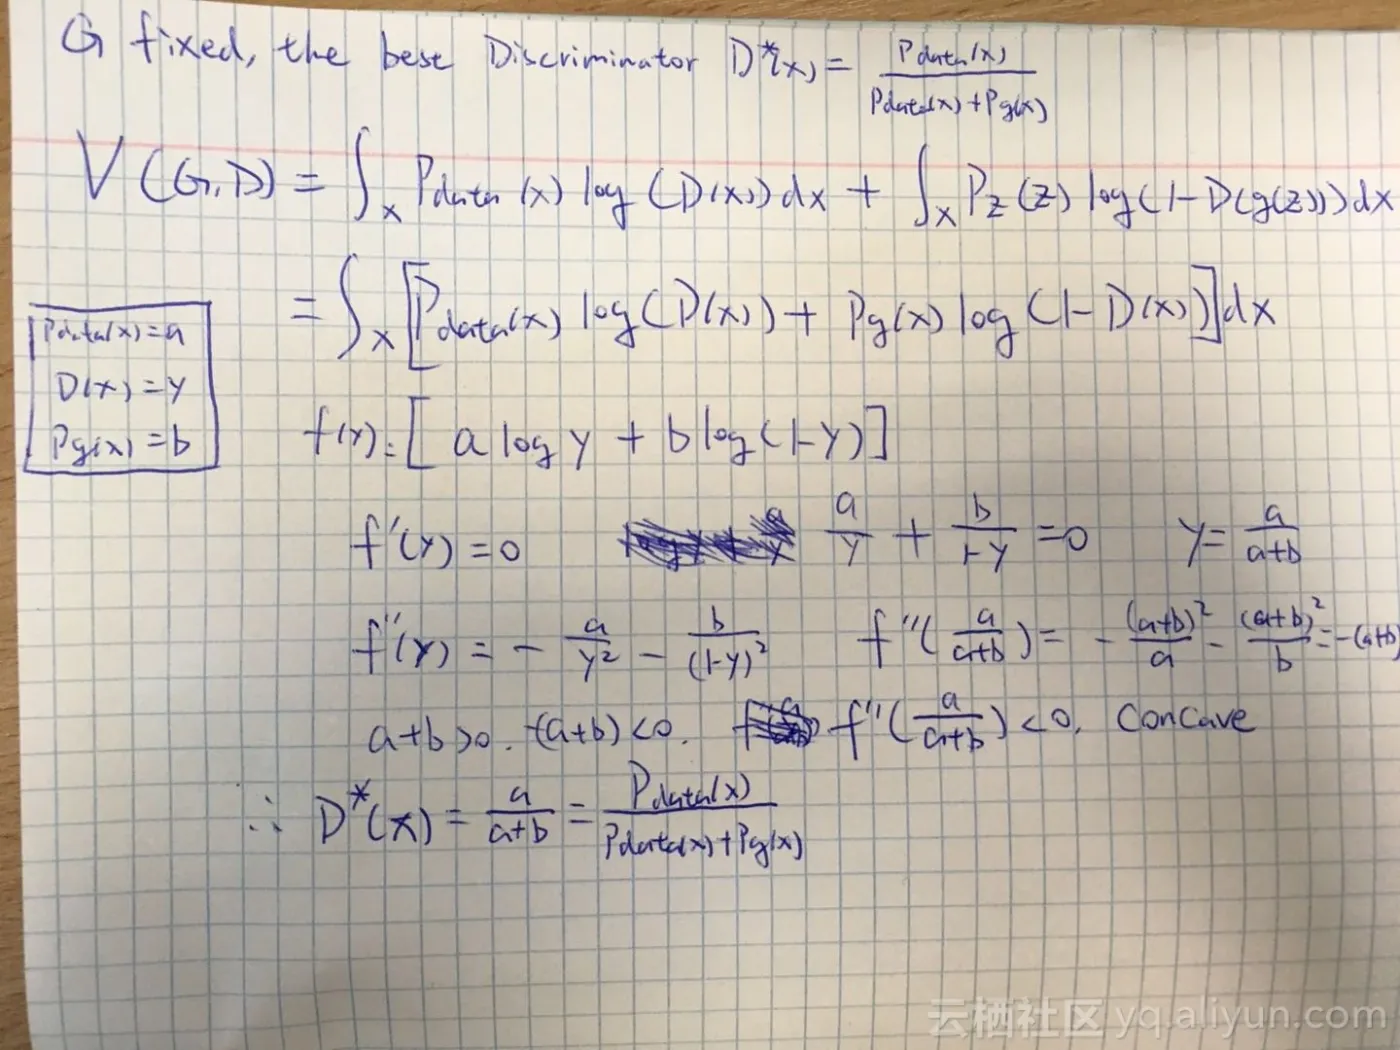 G fixed, the best Discriminator D*(x) = Pdata(x) / Pdata(x)+Pg(x)
V(G,D) = ∫x Pdata(x) log(D(x))dx + ∫x Pz(z) log(1-D(g(z)))dx
= ∫x [Pdata(x) log(D(x)) + Pg(x) log(1-D(x))]dx
Pdata(x)=a
D(x)=y
Pg(x)=b
f(y)=[a log y + b log(1-y)]
f'(y)=0 a/y + b/1-y =0 y= a/a+b
f''(y) = - a/y² - b/(1-y)² f''(a/a+b) = - (a+b)²/a - (a+b)²/b = -(a+b)
a+b>0. -(a+b)<0. f''(a/a+b)<0. concave
∴ D*(x) = a/a+b = Pdata(x) / Pdata(x)+Pg(x)
云栖社区 yq.aliyun.com